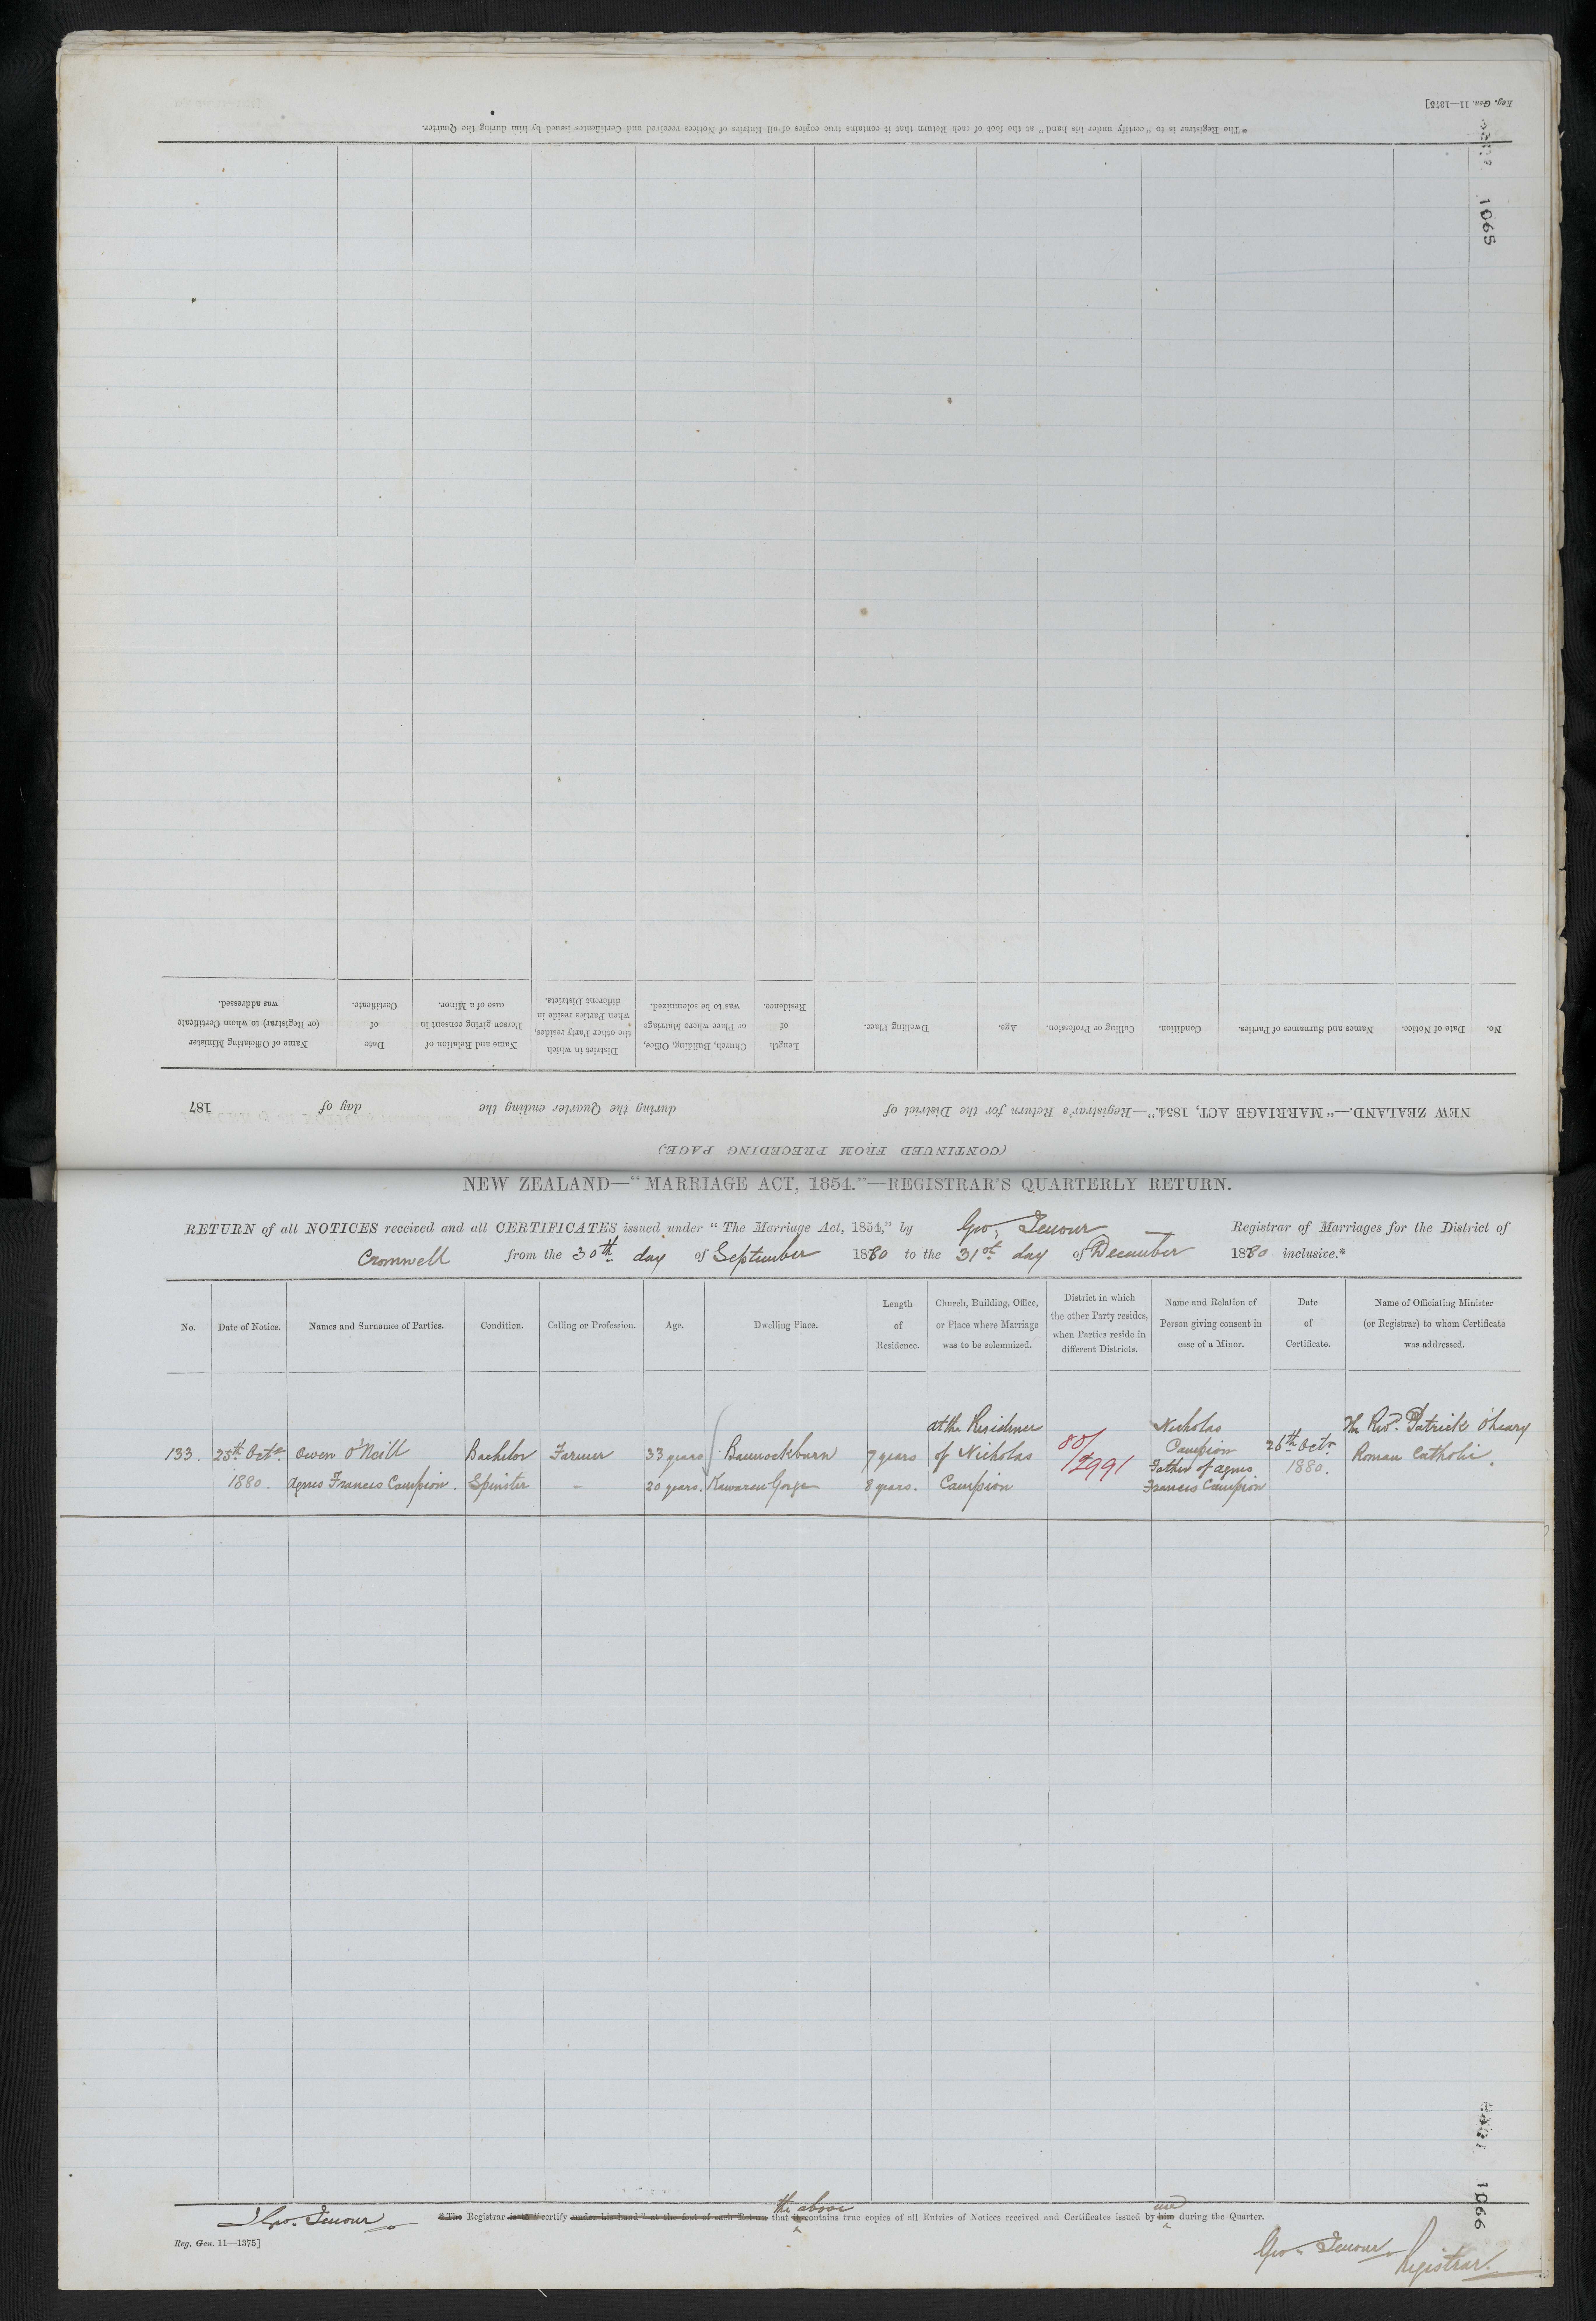 Reg. Gen. 11—1375]
* The Registrar is to "certify under his hand" at the foot of each Return that it contains true copies of all Entries of Notices received and Certificates issued by him during the Quarter.
1065
No.
Date of Notice.
Names and Surnames of Parties.
Condition.
Calling or Profession.
Age.
Dwelling Place.
Length
of
Residence.
Church, Building, Office,
or Place where Marriage
was to be solemnized.
District in which
the other Party resides,
when Parties reside in
different Districts.
Name and Relation of
Person giving consent in
case of a Minor.
Date
of
Certificate.
Name of Officiating Minister
(or Registrar) to whom Certificate
was addressed.
NEW ZEALAND.—"MARRIAGE ACT, 1854."—Registrar's Return for the District of during the Quarter ending the day of 187
(CONTINUED FROM PRECEDING PAGE.)
NEW ZEALAND—"MARRIAGE ACT, 1854."—REGISTRAR'S QUARTERLY RETURN.
RETURN of all NOTICES received and all CERTIFICATES issued under "The Marriage Act, 1854," by Geo. Jenour Registrar of Marriages for the District of
Cromwell from the 30th day of September 1880 to the 31st day of December 1880 inclusive.*
No.
Date of Notice.
Names and Surnames of Parties.
Condition.
Calling or Profession.
Age.
Dwelling Place.
Length
of
Residence.
Church, Building, Office,
or Place where Marriage
was to be solemnized.
District in which
the other Party resides,
when Parties reside in
different Districts.
Name and Relation of
Person giving consent in
case of a Minor.
Date
of
Certificate.
Name of Officiating Minister
(or Registrar) to whom Certificate
was addressed.
133.
25th Octr
1880.
Owen O'Neill
Agnes Francis Campion.
Bachelor
Spinster
Farmer
-
33 years
20 years.
Bannockburn
Kawarau Gorge
7 years
8 years.
at the Residence
of Nicholas
Campion
80/
2991
Nicholas
Campion
Father of Agnes
Francis Campion
26th Octr
1880.
The Revd. Patrick O'Leary
Roman Catholic.
I Geo. Jenour
* The Registrar is to "certify under his hand" at the foot of each Return that it contains true copies of all Entries of Notices received and Certificates issued by him during the Quarter.
the above
me
Reg. Gen. 11—1375]
1066
Geo. Jenour
Registrar.